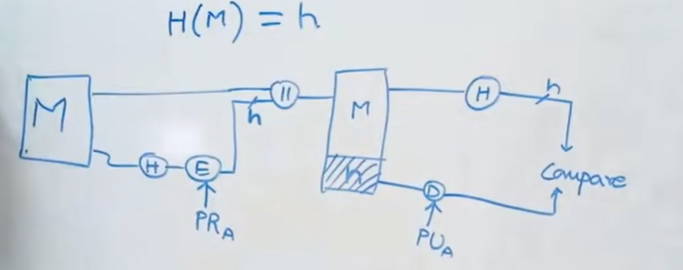 H(M) = h
M
H
E
PRA
h
||
M
h
H
h
D
PUA
Compare